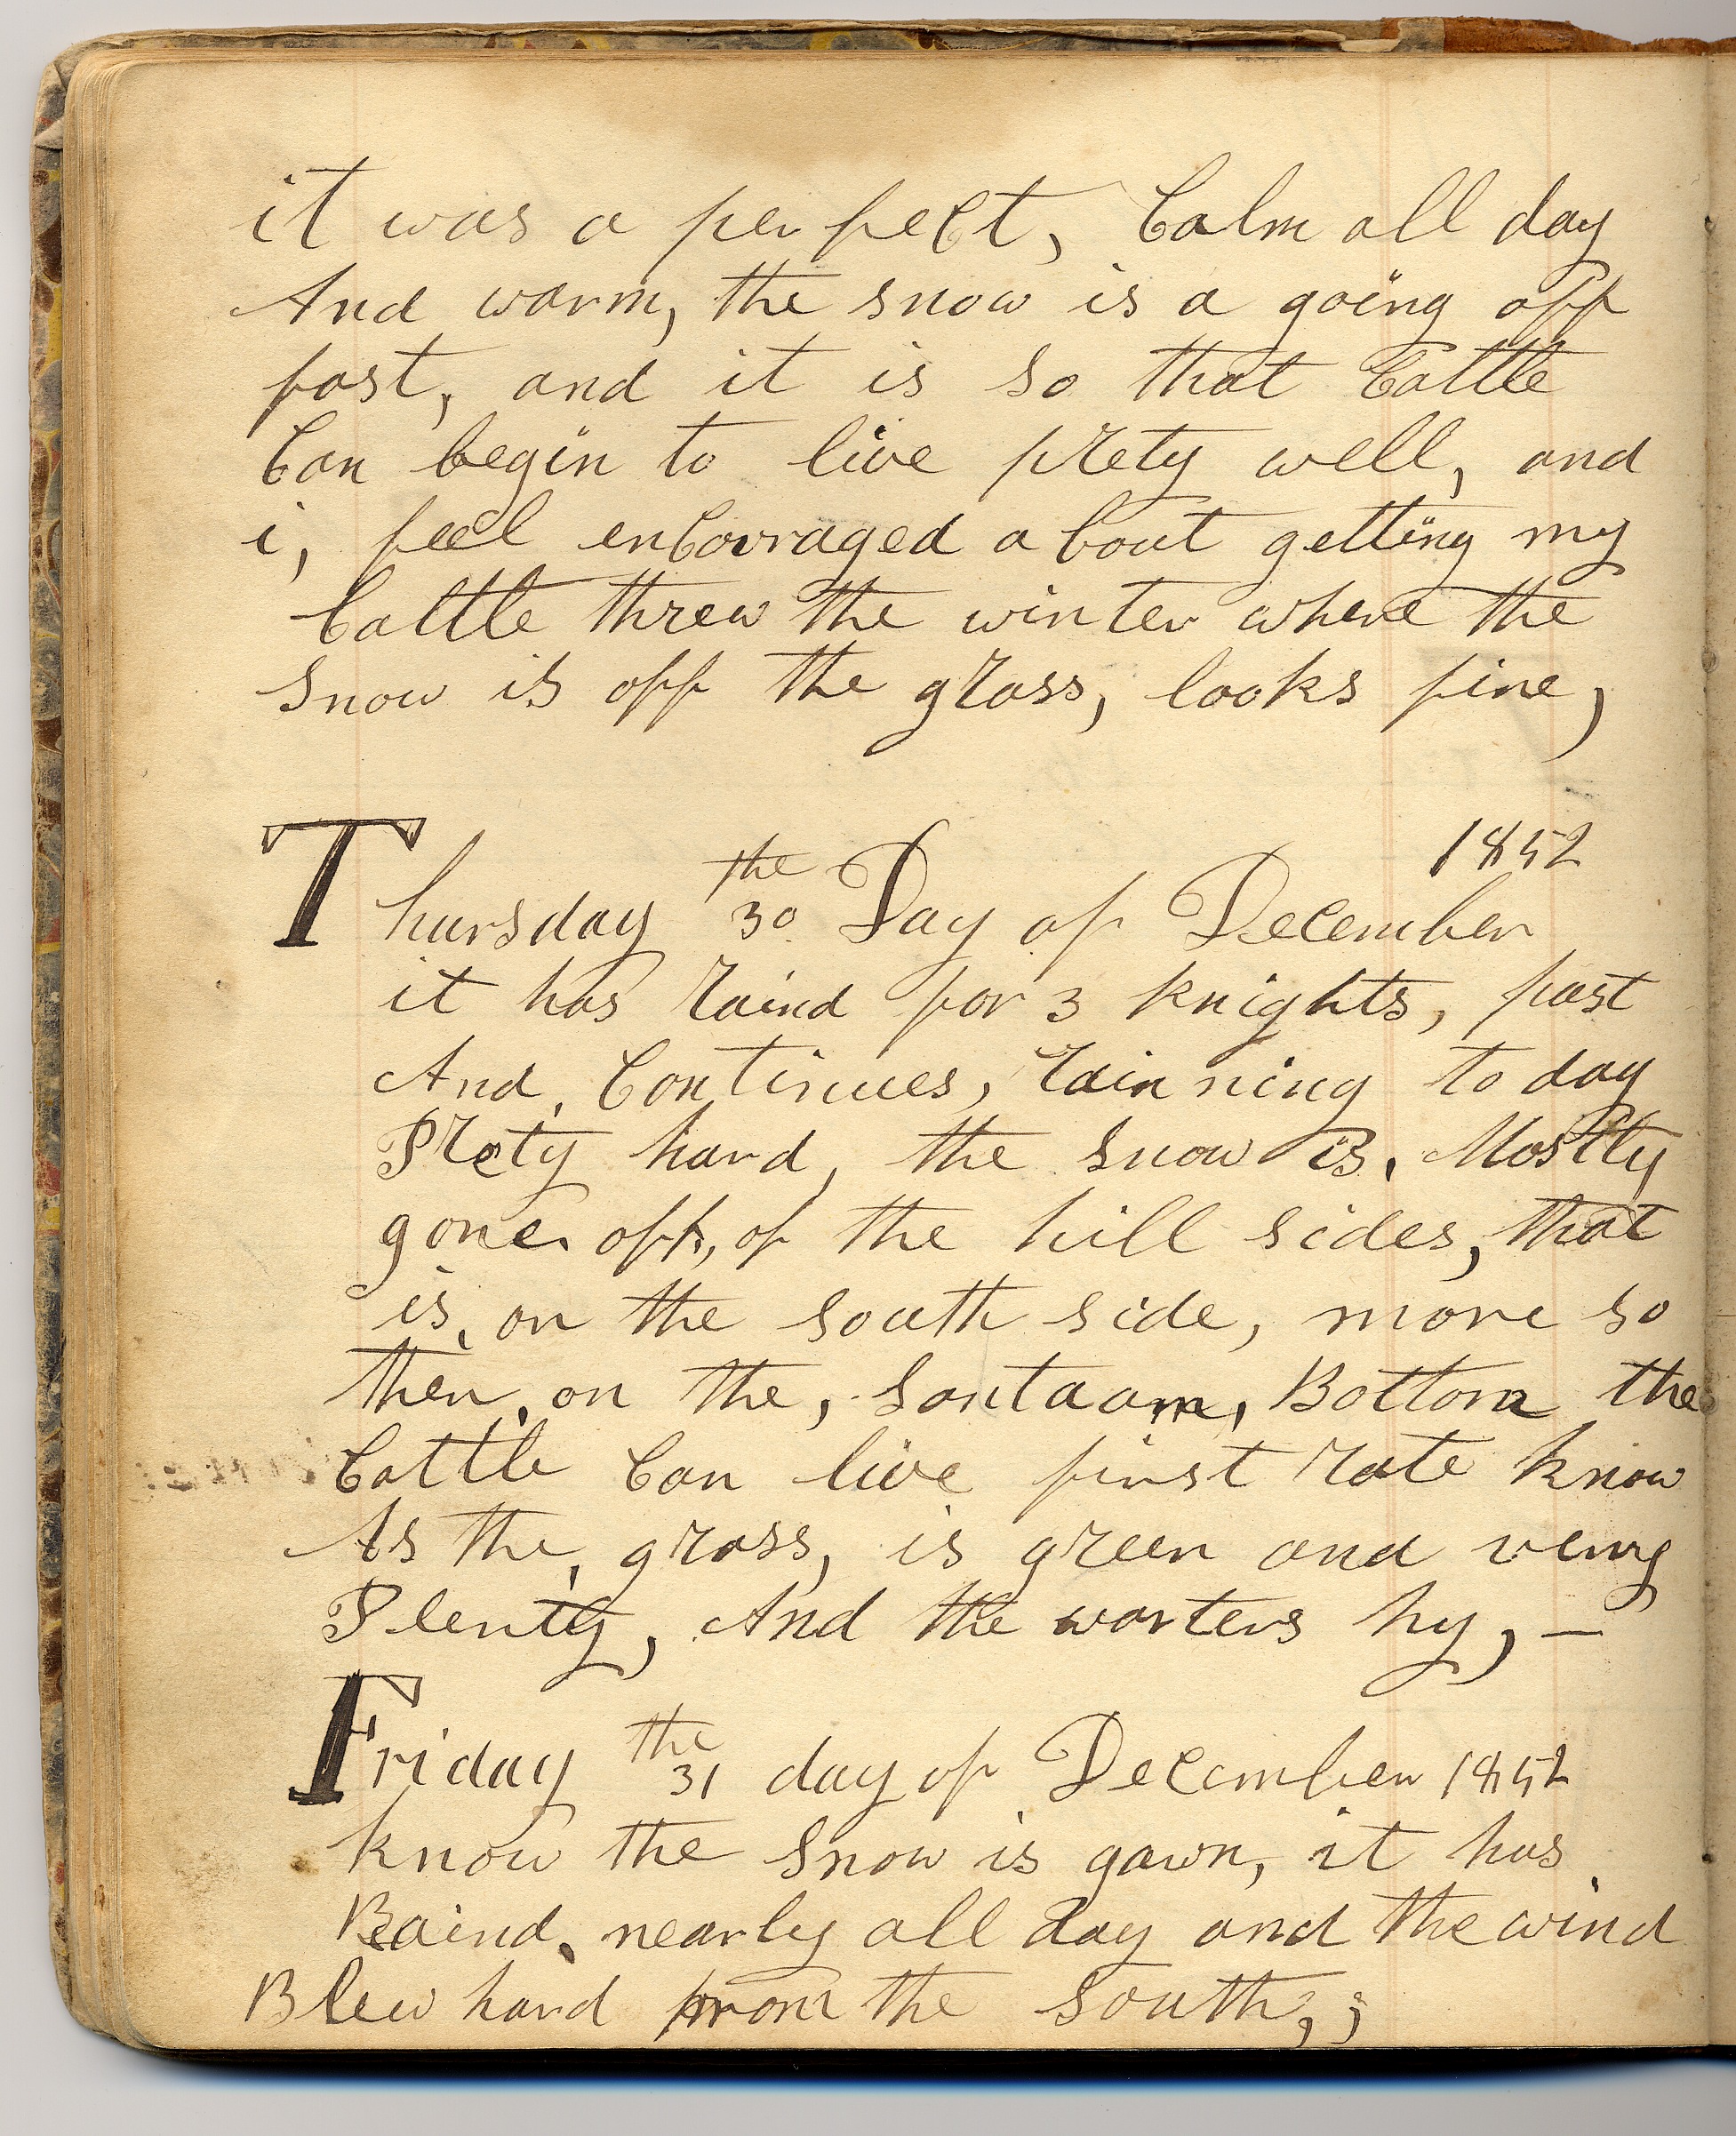 it was a perfect, Calm all day
And warm, the snow is a going off
fast, and it is so that Cattle
Can begin to live prety well, and
i, feel encouraged about getting my
Cattle threw the winter where the
Snow is off the grass, looks fine,
1852
Thursday the 30 Day of December
it has raind for 3 knights, past
And, Continues, rainning to day
Prety hard, the snow is, Mostly
gone. off, of the hill sides, that
is, on the south side, more so
then, on the, Bottom the
Cattle Can live first rate know
As the, grass, is green and very
Plenty, And the warters hy, —
Friday the 31 day of December 1852
know the Snow is gawn, it has
Raind, nearly all day and the wind
Blew hard from the South, ;